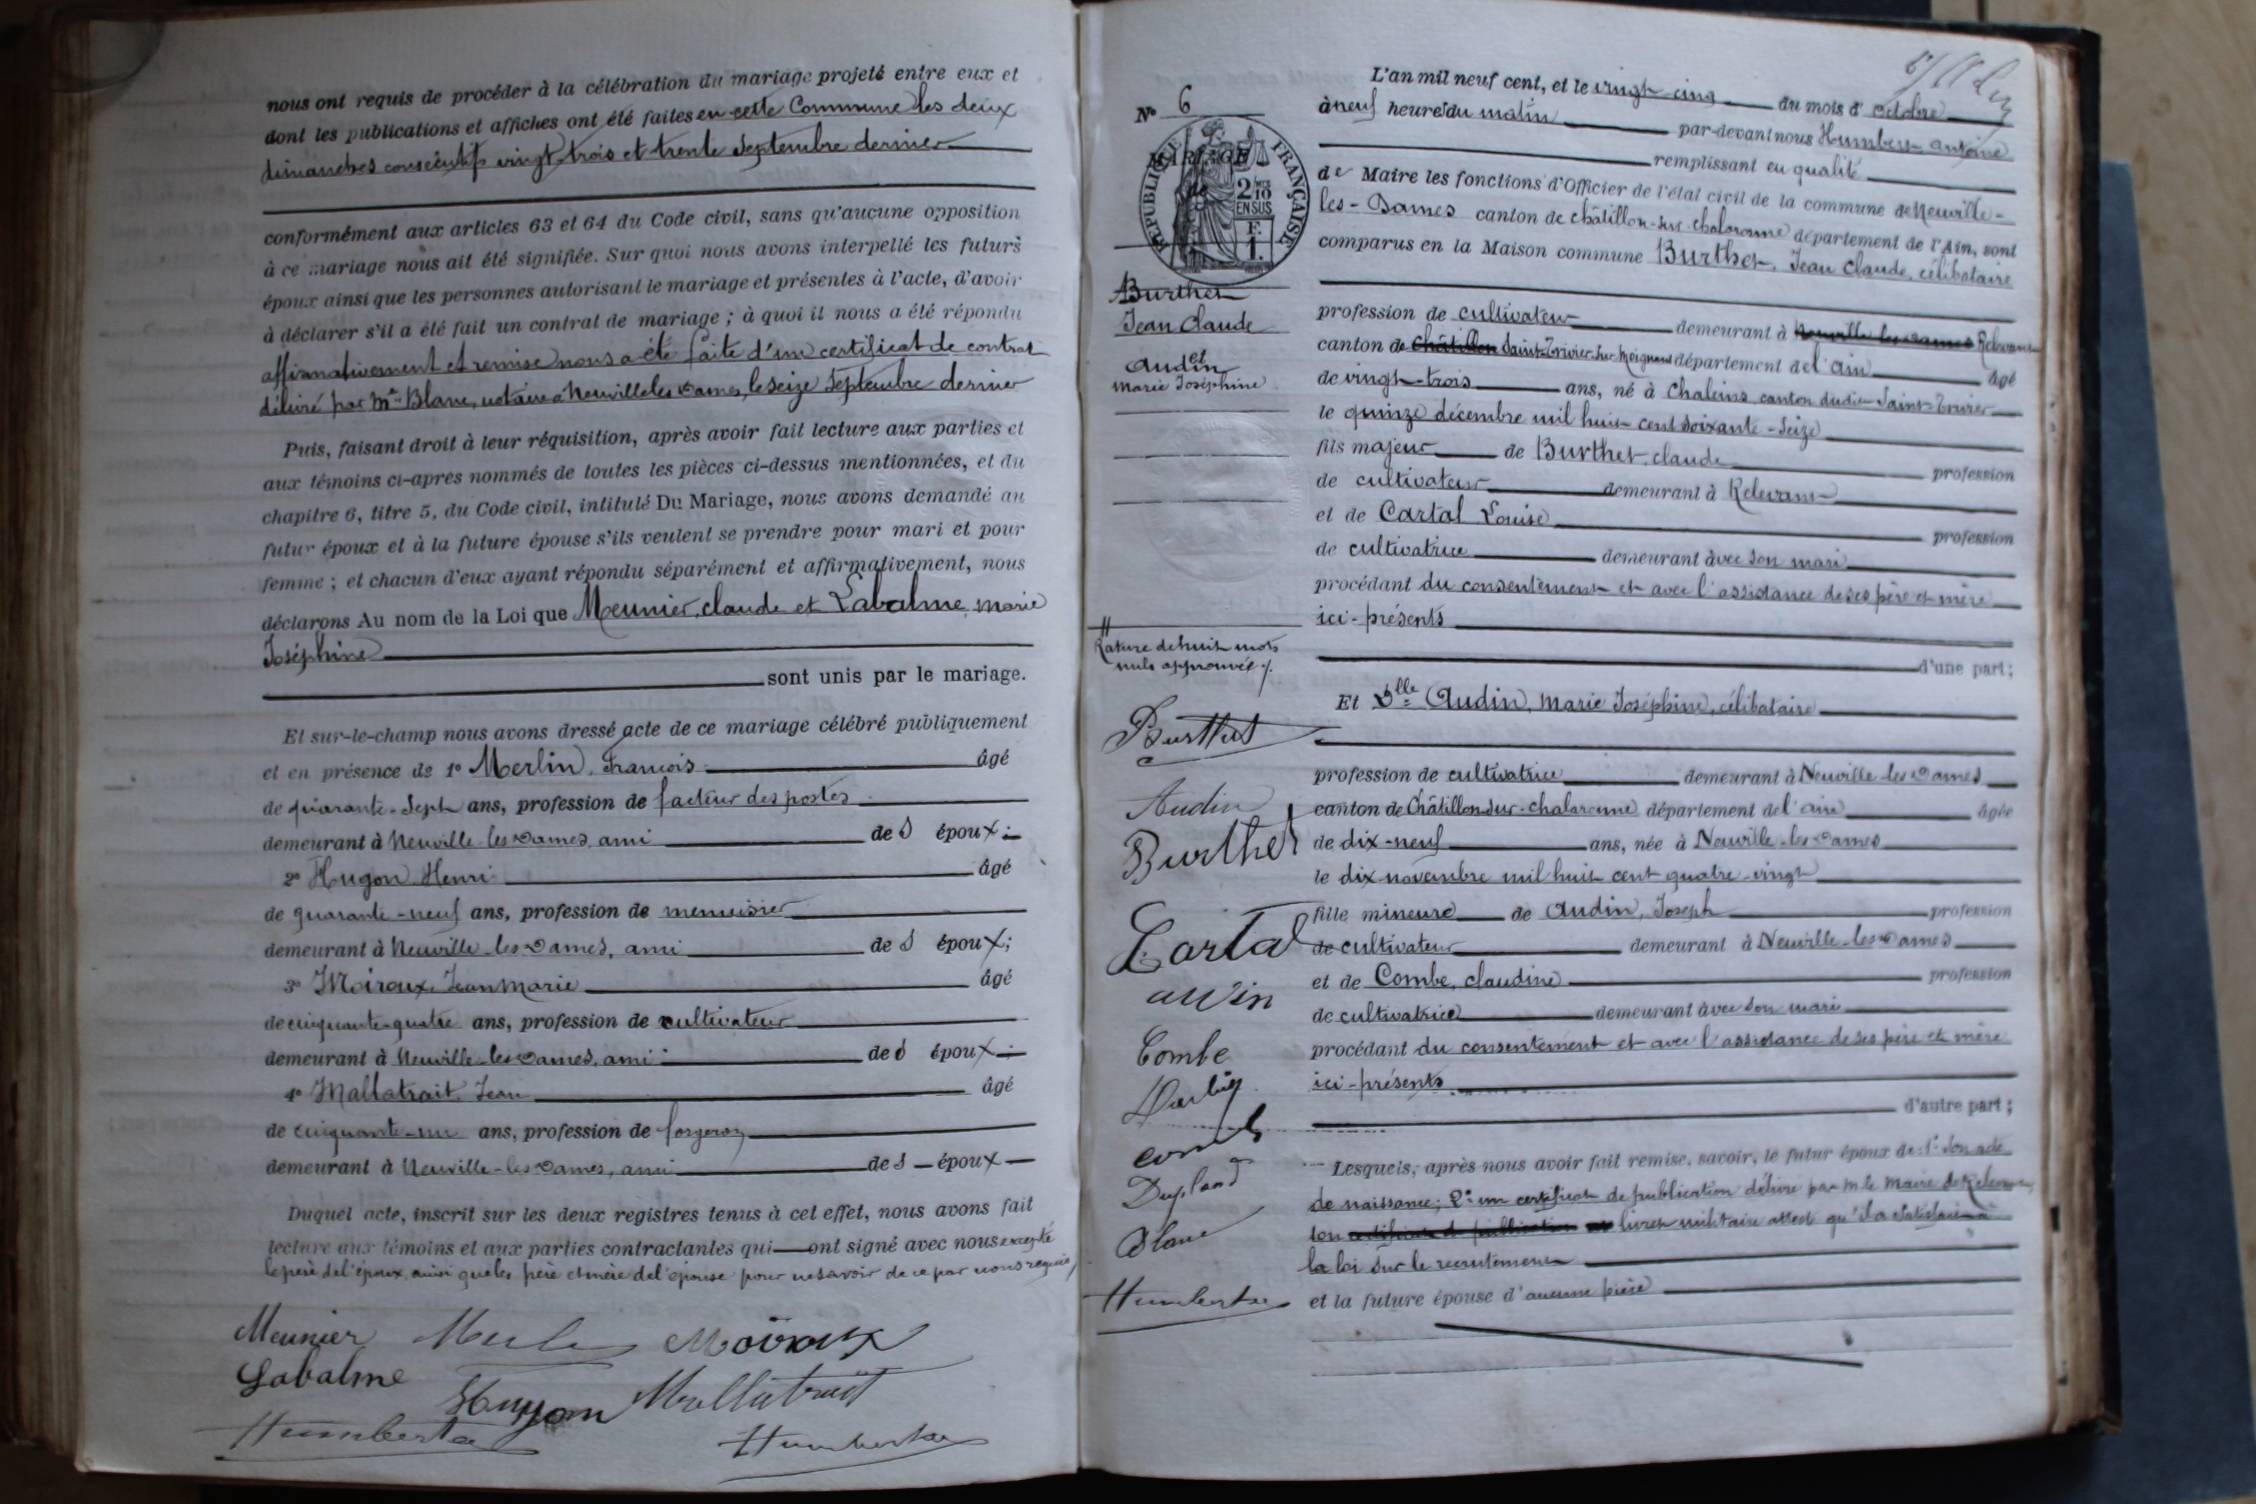 nous ont requis de procéder à la célébration du mariage projeté entre eux et
dont les publications et affiches ont été faites en cette Commune les deux
dimanches consécutifs vingt-trois et trente Septembre dernier
conformément aux articles 63 et 64 du Code civil, sans qu'aucune opposition
à ce mariage nous ait été signifiée. Sur quoi nous avons interpellé les futurs
époux ainsi que les personnes autorisant le mariage et présentes à l'acte, d'avoir
à déclarer s'il a été fait un contrat de mariage ; à quoi il nous a été répondu
affirmativement et remise nous a été faite d'un certificat de contrat
délivré par Me Blanc, notaire à Neuville les Dames, le seize Septembre dernier
Puis, faisant droit à leur réquisition, après avoir fait lecture aux parties et
aux témoins ci-après nommés de toutes les pièces ci-dessus mentionnées, et du
chapitre 6, titre 5, du Code civil, intitulé Du Mariage, nous avons demandé au
futur époux et à la future épouse s'ils veulent se prendre pour mari et pour
femme ; et chacun d'eux ayant répondu séparément et affirmativement, nous
déclarons Au nom de la Loi que Meunier, claude et Labalme, marie
Joséphine
sont unis par le mariage.
Et sur-le-champ nous avons dressé acte de ce mariage célébré publiquement
et en présence de 1° Merlin, François âgé
de quarante-sept ans, profession de facteur des postes
demeurant à Neuville-les-Dames, ami de s époux
2° Hugon Henri âgé
de quarante-neuf ans, profession de menuisier
demeurant à Neuville-les-Dames, ami de s époux;
3° Moiroux, Jean Marie âgé
de cinquante-quatre ans, profession de cultivateur
demeurant à Neuville-les-Dames, ami de s époux
4° Mallatrait, Jean âgé
de cinquante-un ans, profession de forgeron
demeurant à Neuville-les-Dames, ami de s époux
Duquel acte, inscrit sur les deux registres tenus à cet effet, nous avons fait
lecture aux témoins et aux parties contractantes qui ont signé avec nous excepté
le père de l'époux, ainsi que les père et mère de l'épouse pour ne savoir de ce par nous requis
Meunier Merlin Moiroux
Labalme Hugon Mallatrait
Humbert Humbert
N° 6
MARIAGE
de
RÉPUBLIQUE FRANÇAISE
2/10 EN SUS
F. 1.
Burthet
Jean Claude
et
Audin
Marie Joséphine
Rature de huit mots
nuls approuvée
Burthet
Audin
Burthet
Cartal
Combe
Dupland
Blanc
Humbert
L'an mil neuf cent, et le vingt-cinq du mois d'octobre
à neuf heures du matin par-devant nous Humbert antoine
remplissant en qualité
de Maire les fonctions d'Officier de l'état civil de la commune de Neuville-
les-Dames canton de châtillon-sur-chalaronne département de l'Ain, sont
comparus en la Maison commune Burthet, Jean Claude, célibataire
profession de cultivateur demeurant à Neuville les Dames Relevans
canton de Châtillon Saint-Trivier-sur-Moignans département de l'ain âgé
de vingt-trois ans, né à Chaleins canton dudit Saint-Trivier
le quinze décembre mil huit cent soixante-seize
fils majeur de Burthet, claude profession
de cultivateur demeurant à Relevans
et de Cartal Louise profession
de cultivatrice demeurant avec son mari
procédant du consentement et avec l'assistance de ses père et mère
ici-présents
d'une part;
Et Dlle Audin, Marie Joséphine, célibataire
profession de cultivatrice demeurant à Neuville-les-Dames
canton de Châtillon-sur-chalaronne département de l'ain âgée
de dix-neuf ans, née à Neuville-les-Dames
le dix novembre mil huit cent quatre-vingt
fille mineure de Audin, Joseph profession
de cultivateur demeurant à Neuville-les-Dames
et de Combe, claudine profession
de cultivatrice demeurant avec son mari
procédant du consentement et avec l'assistance de ses père et mère
ici-présents
d'autre part;
Lesquels, après nous avoir fait remise, savoir, le futur époux de: 1° son acte
de naissance; 2° un certificat de publication délivré par m. le maire de Relevans,
son certificat de publication livret militaire atteste qu'il a satisfait à
la loi sur le recrutement
et la future épouse d'aucune pièce